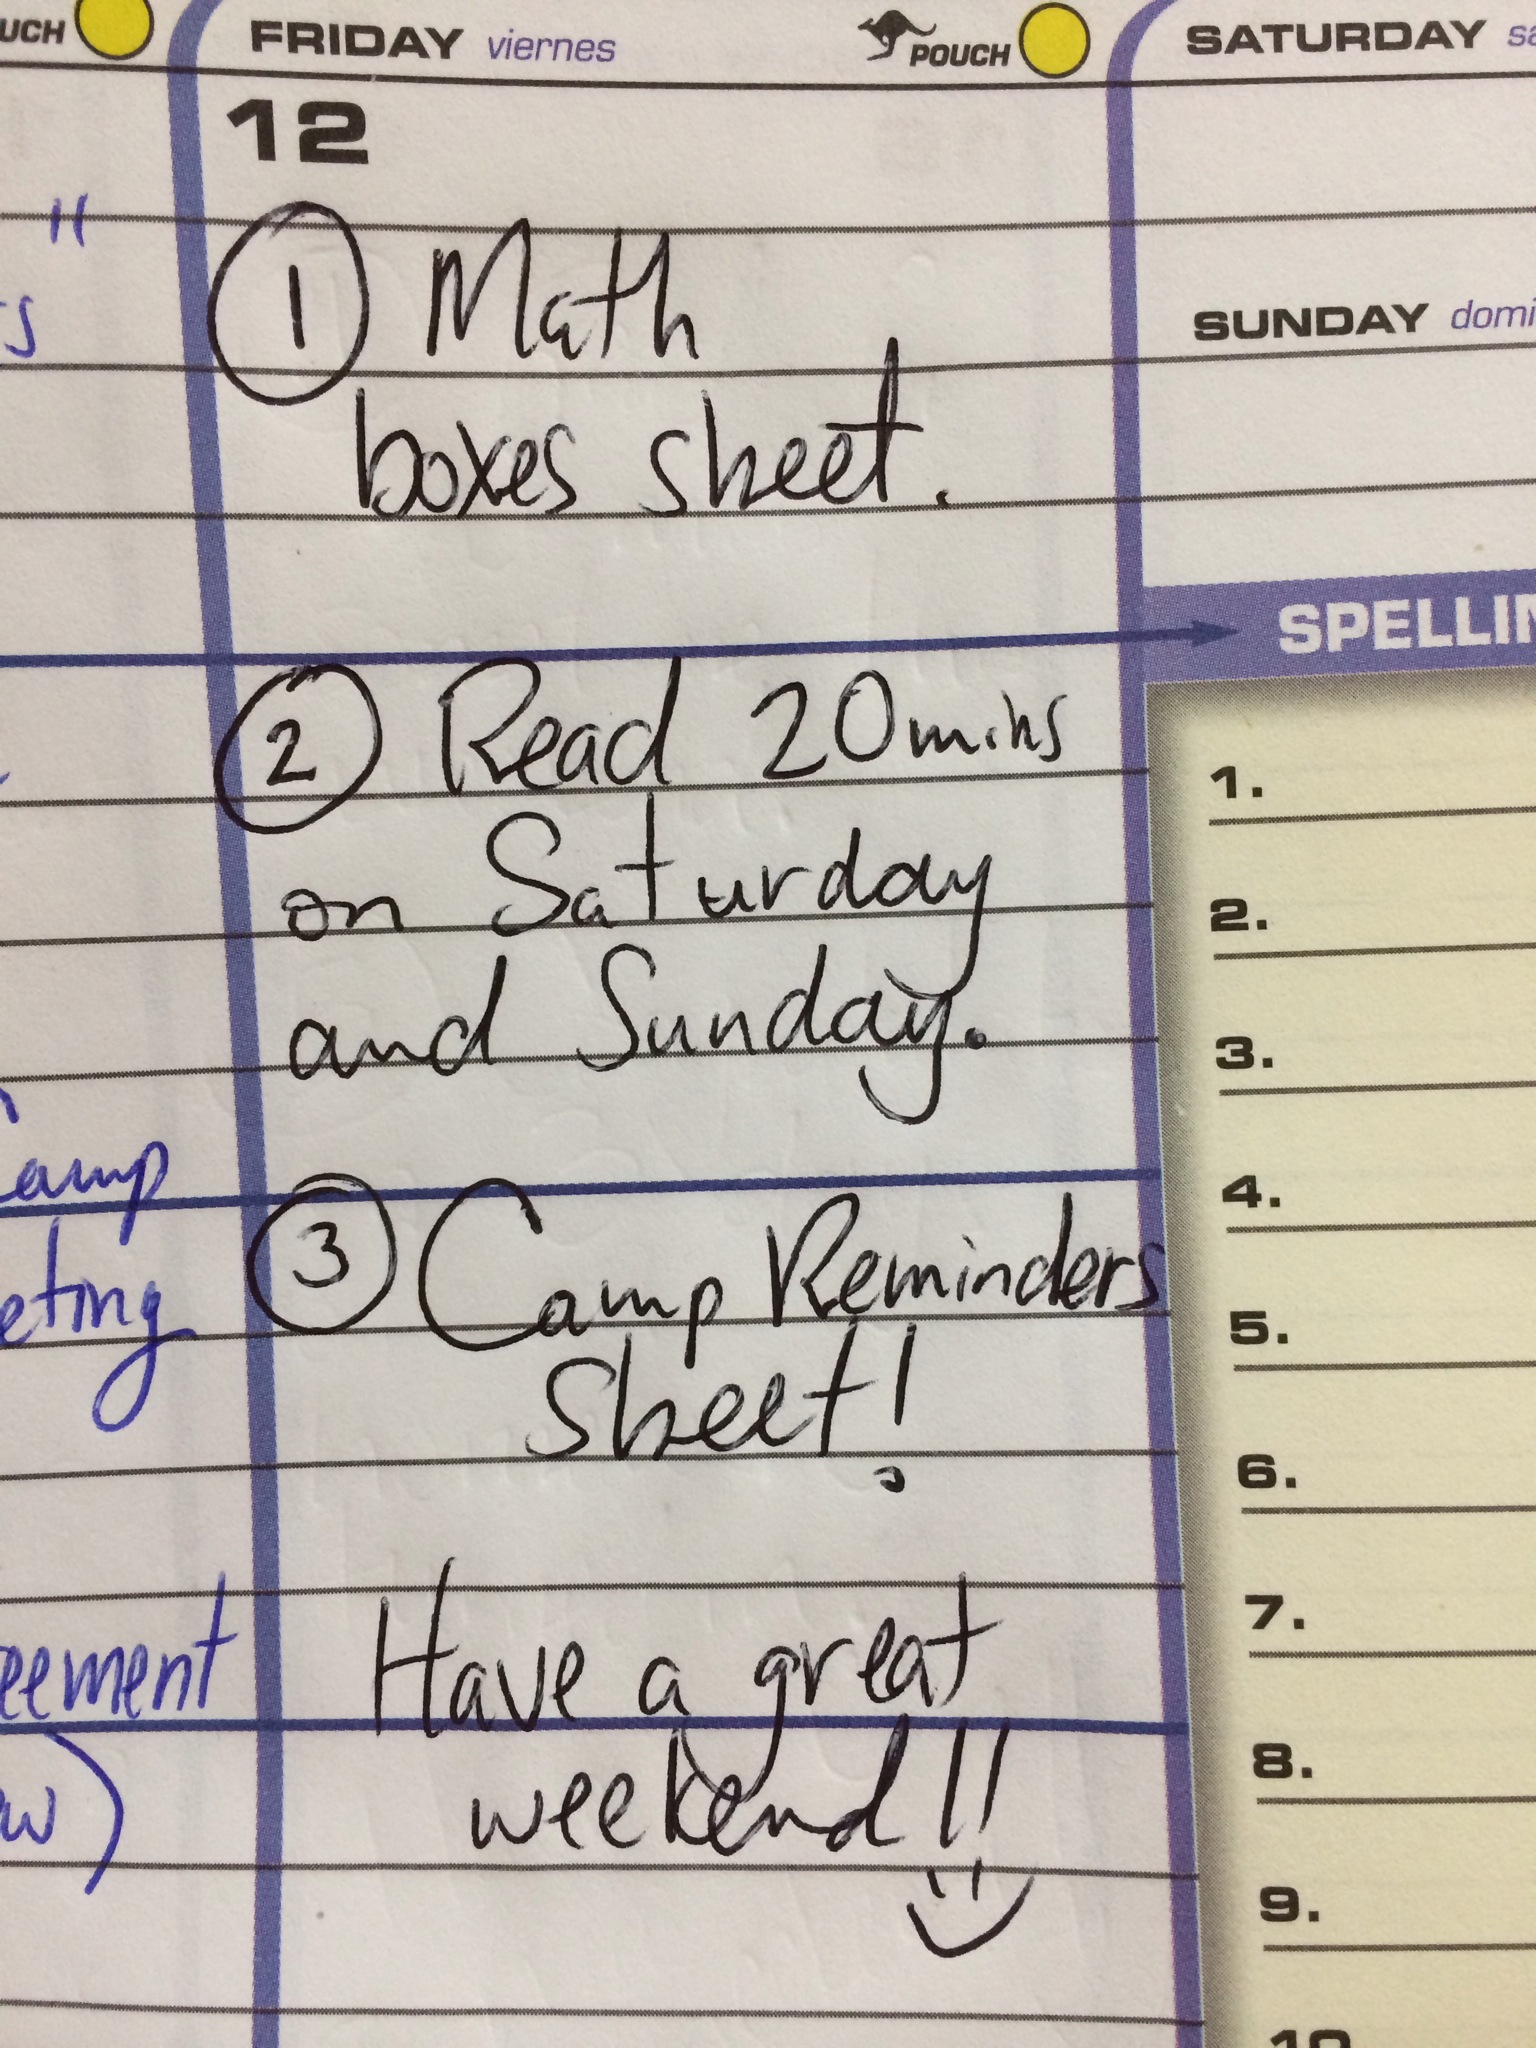 UCH
FRIDAY viernes
POUCH
SATURDAY
12
① Math
boxes sheet.
② Read 20mins
on Saturday
and Sunday.
③ Camp Reminders
Sheet!
Have a great
weekend!!
"
s
amp
eting
eement
w)
SUNDAY domi
SPELLIN
1.
2.
3.
4.
5.
6.
7.
8.
9.
10